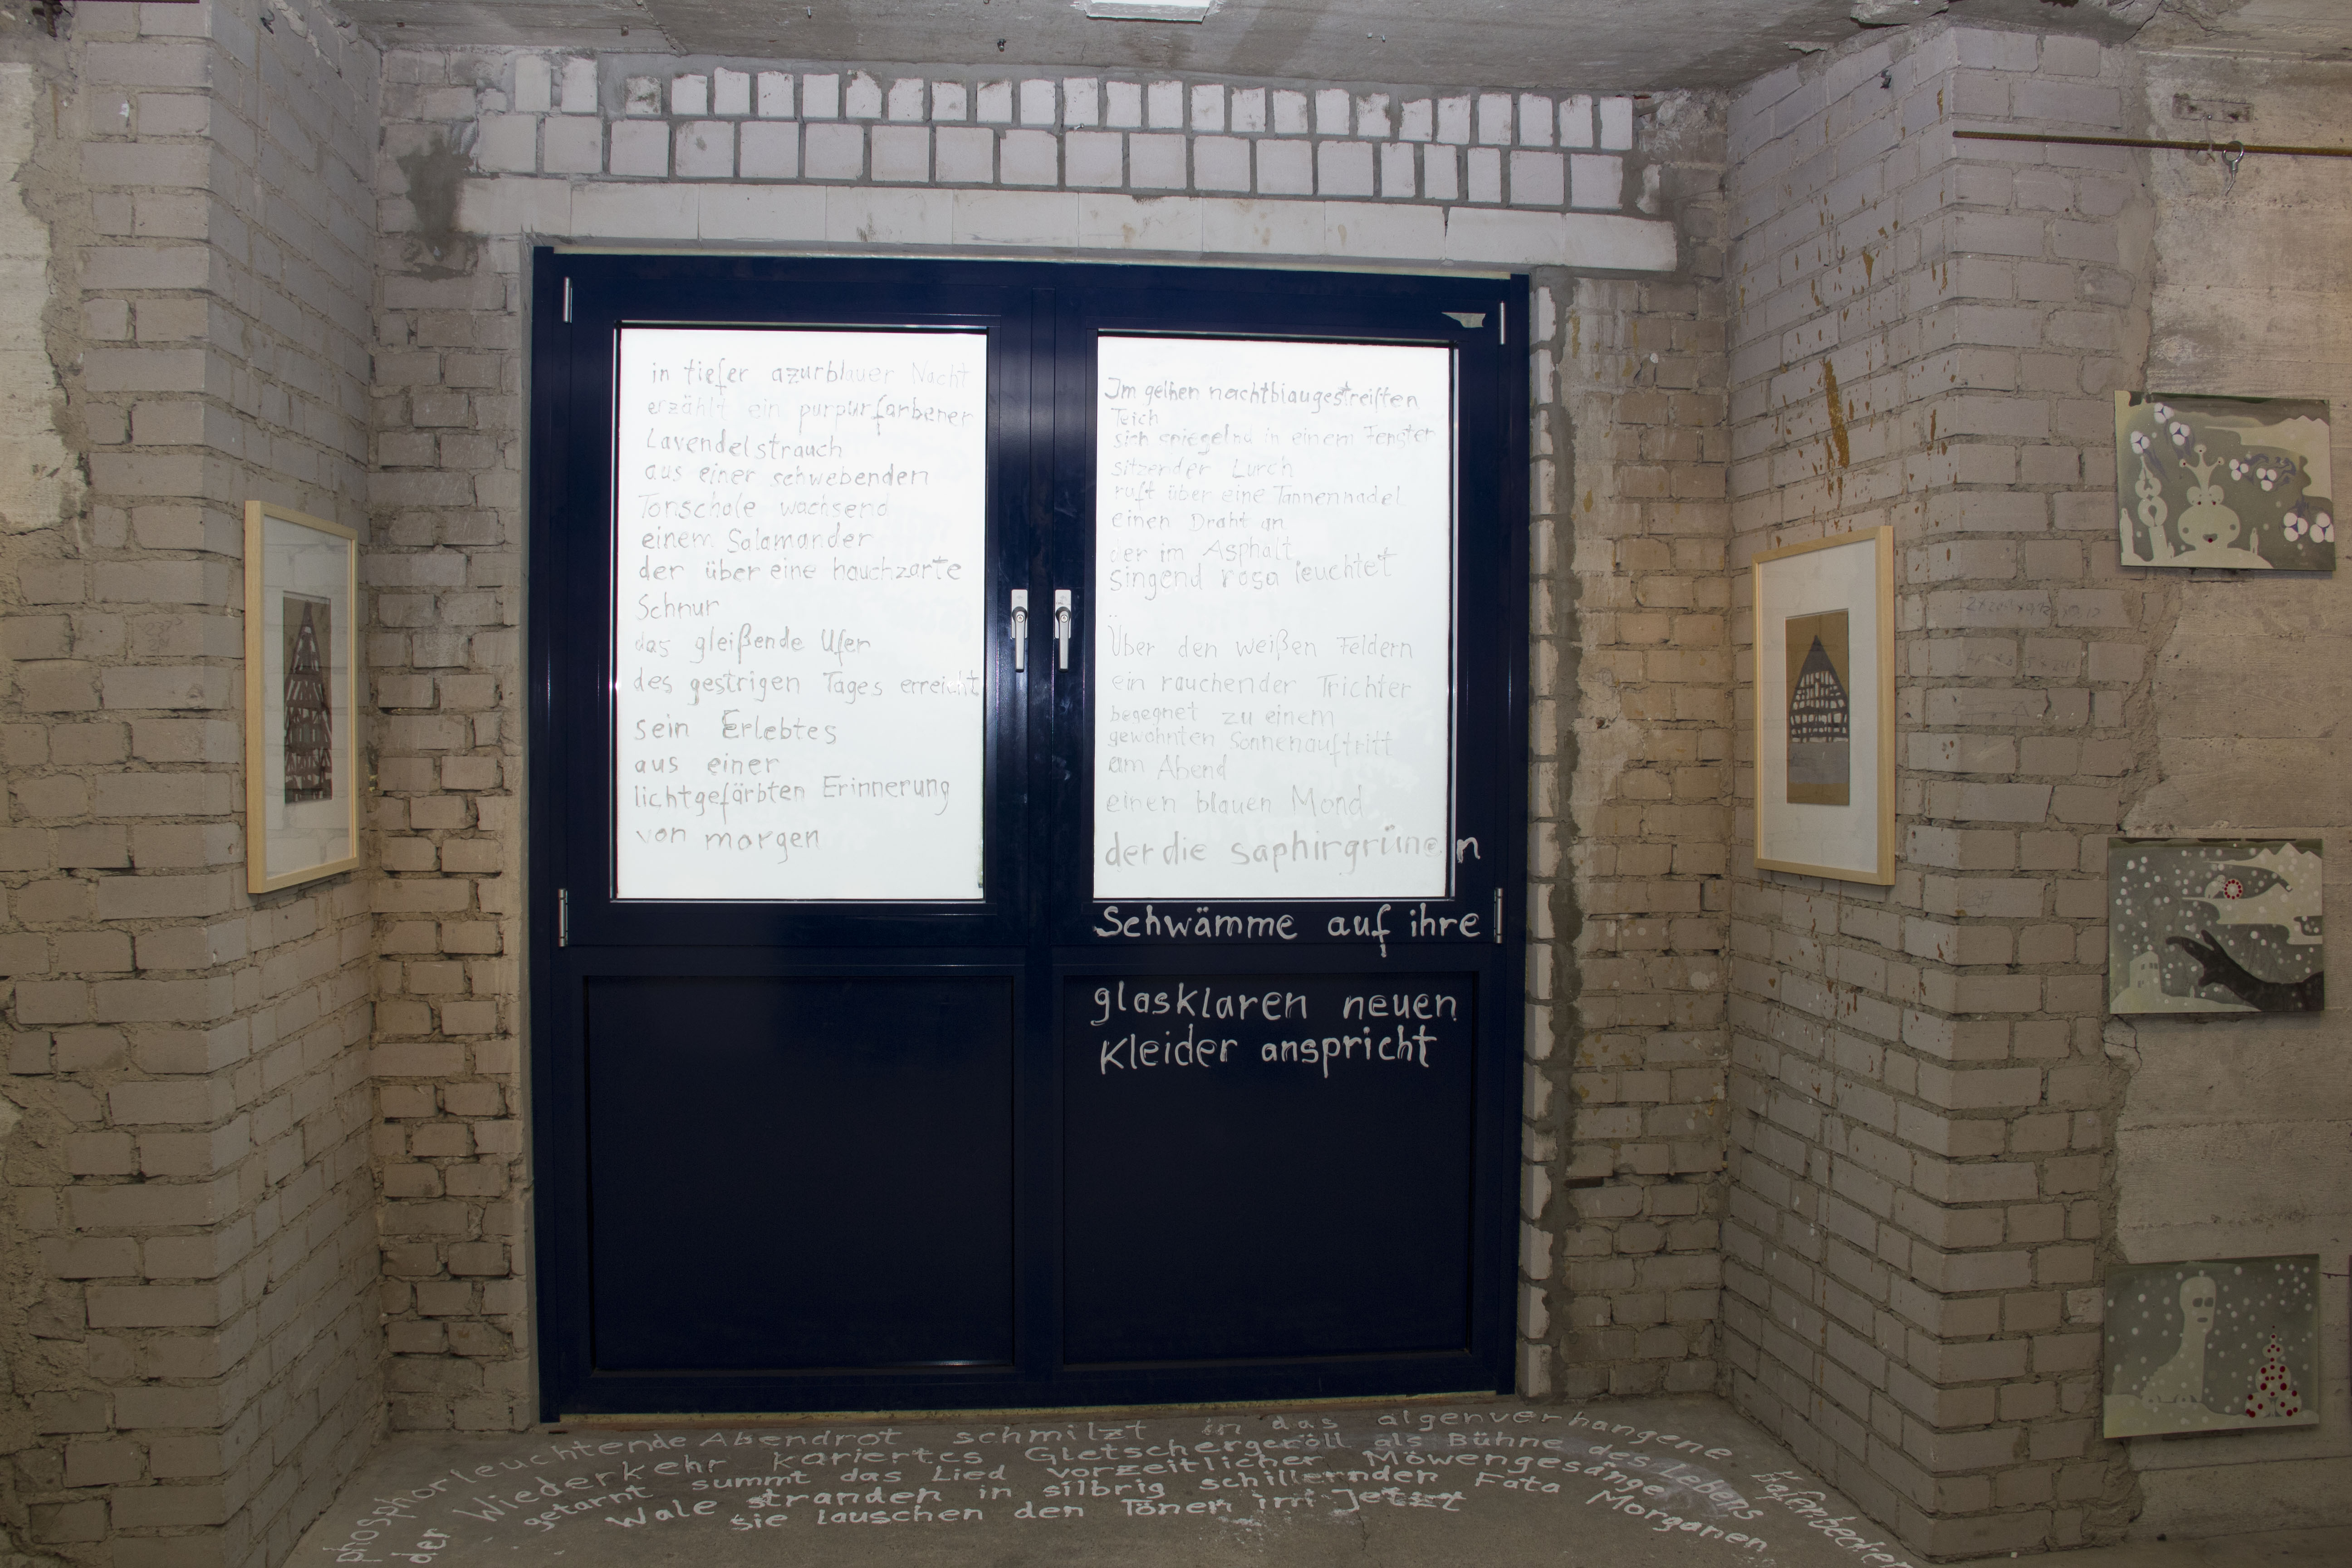 in tiefer azurblauer Nacht
erzählt ein purpurfarbener
Lavendelstrauch
aus einer schwebenden
Tonschale wachsend
einem Salamander
der über eine hauchzarte
Schnur
das gleißende Ufer
des gestrigen Tages erreicht
sein Erlebtes
aus einer
lichtgefärbten Erinnerung
von morgen
Im gelben nachtblaugestreiften
Teich
sich spiegelnd in einem Fenster
sitzender Lurch
ruft über eine Tannennadel
einen Draht an
der im Asphalt
singend rosa leuchtet
Über den weißen Feldern
ein rauchender Trichter
begegnet zu einem
gewohnten Sonnenauftritt
am Abend
einen blauen Mond
der die saphirgrünen
Schwämme auf ihre
glasklaren neuen
Kleider anspricht
phosphorleuchtende Abendrot schmilzt in das algenverhangene Hafenbecken
der Wiederkehr kariertes Gletschergeröll als Bühne des Lebens
getarnt summt das Lied vorzeitlicher Möwengesänge
Wale stranden in silbrig schillernden Fata Morganen
sie lauschen den Tönen im Jetzt